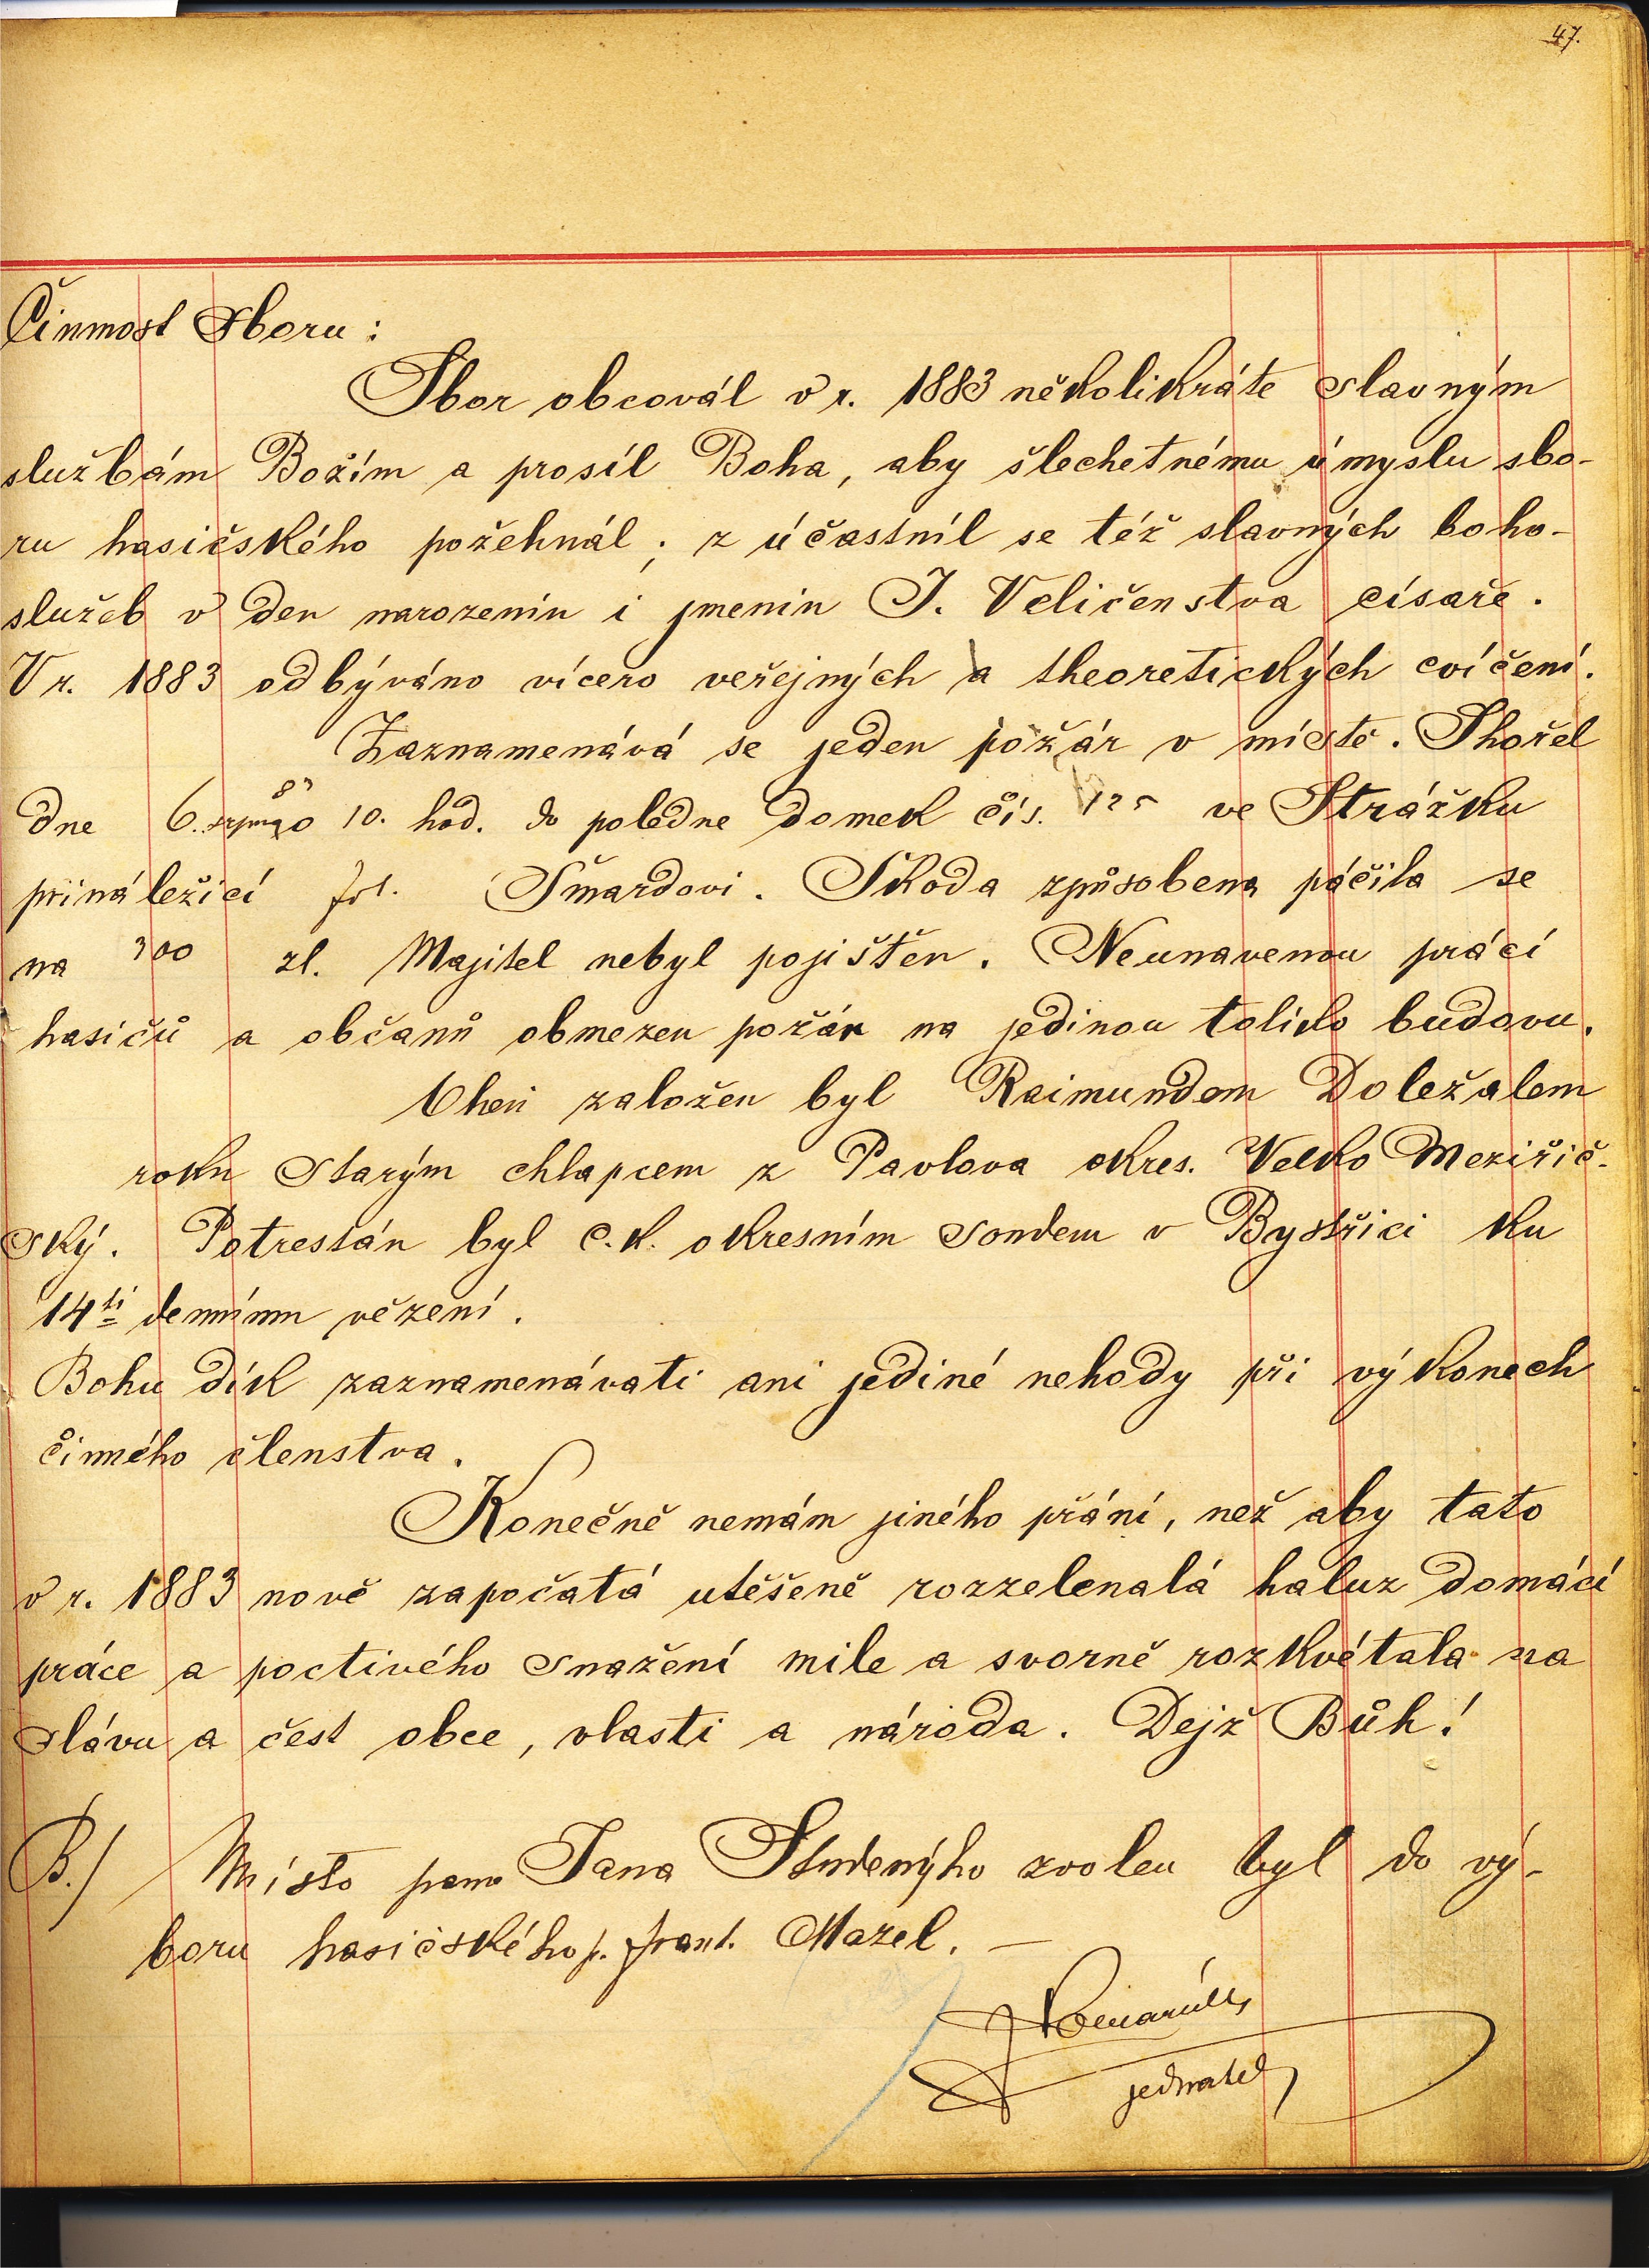 47.
Činnost Sboru :
Sbor obcovál v r. 1883 několikráte slavným
službám Božím a prosíl Boha, aby šlechetnému úmyslu sbo-
ru hasičského požehnál ; zúčastníl se též slavných boho-
služeb v den narozenin i jmenin J. Veličenstva císaře .
V r. 1883 odbýváno vícero veřejných a theoretických cvičení.
Zaznamenává se jeden požár v místě . Shořel
dne 6. srpna 83 o 10. hod. do poledne domek čís. 125 ve Strážku
přináležící Frt. Šmardovi . Škoda způsobena páčila se
na 300 zl. Majitel nebyl pojištěn . Neunavenou prácí
hasičů a občanů obmezen požár na jedinou toliko budovu .
Oheň založen byl Raimundem Doležalem
roků starým chlapcem z Pavlova okres. Velko Meziřič-
ský . Potrestán byl c.k. okresním soudem v Bystřici ku
14ti dennímu vězení .
Bohu dík zaznamenávati ani jediné nehody při výkonech
činného členstva .
Konečně nemám jiného přání , než aby tato
v r. 1883 nově započatá utěšeně rozzelenalá haluz domácí
práce a poctivého snažení mile a svorně rozkvétala na
slávu a čest obce , vlasti a národa . Dejž Bůh !
B./ Místo pana Jana Studenýho zvolen byl do vý-
boru hasičského p. Frant. Mazel . —
jednatel